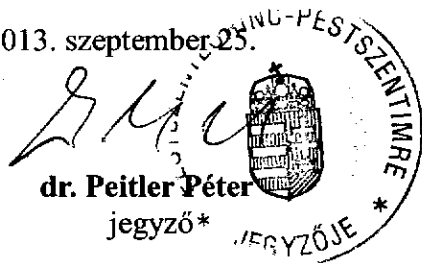 013. szeptember 25.
dr. Peitler Péter
jegyző*
-PESTSZENTIMRE * JEGYZŐJE